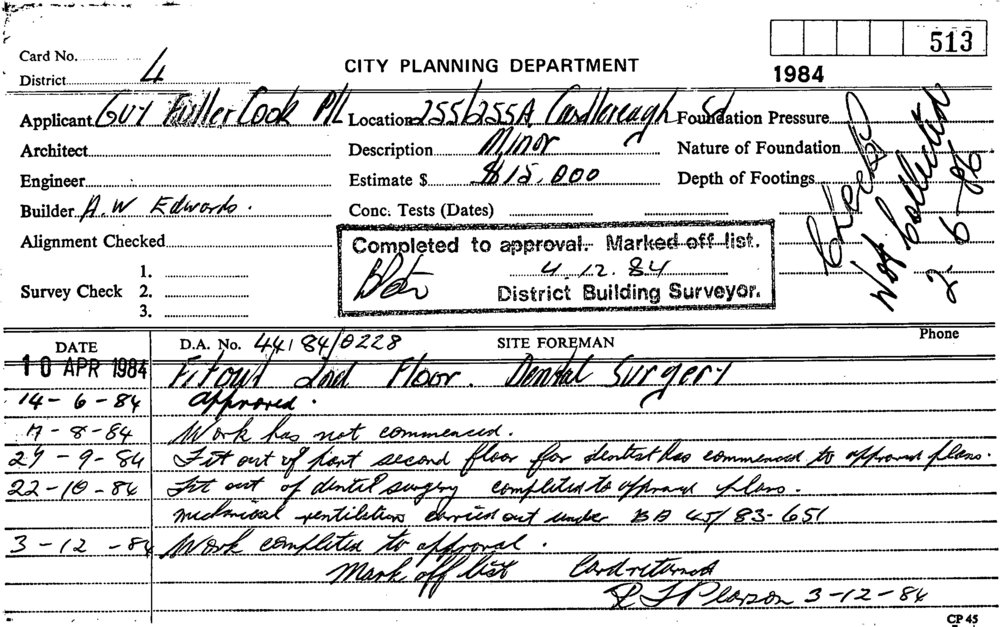 513
Card No.
District 4
CITY PLANNING DEPARTMENT
1984
Applicant Guy Fuller Cook P/L Location 255/255A Castlereagh St Foundation Pressure
Architect Description Minor Nature of Foundation
Engineer Estimate $ $15,000 Depth of Footings
Builder A.W Edwards. Conc. Tests (Dates)
Alignment Checked
Survey Check 1.
2.
3.
Completed to approval. Marked off list.
4.12.84
District Building Surveyor.
Checked
Not Collected
2-6-86
DATE D.A. No. 44/84/0228 SITE FOREMAN Phone
10 APR 1984 Fitout 2nd Floor. Dental Surgery
14-6-84 Approved.
17-8-84 Work has not commenced.
24-9-84 Fit out of part second floor for dentist has commenced to approved plans.
22-10-84 Fit out of dental surgery completed to approved plans.
Mechanical ventilation carried out under BA 45/83-651
3-12-84 Work completed to approval.
Mark off list Card returned
Pearson 3-12-84
CP 45